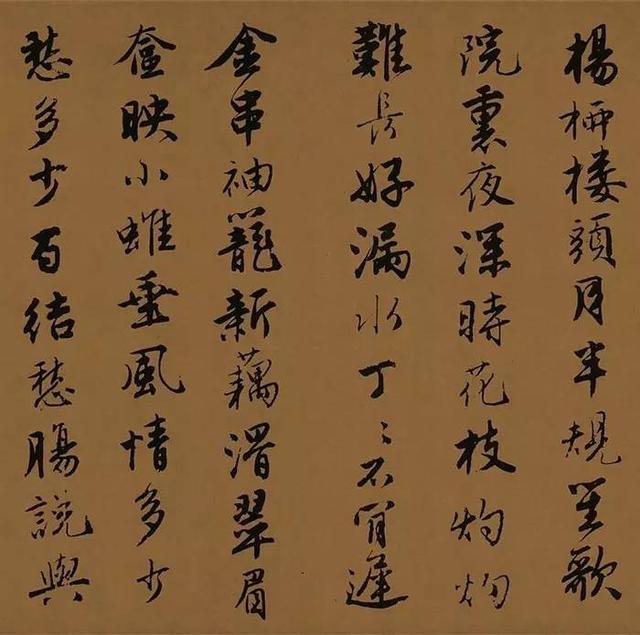 楊柳楼頭月半規笙歌
院裏夜深時花枝灼灼
難長好漏水丁〻不肯遲
金串袖籠新藕滑翠眉
奩映小垂風情多少
愁多少百結愁腸說與